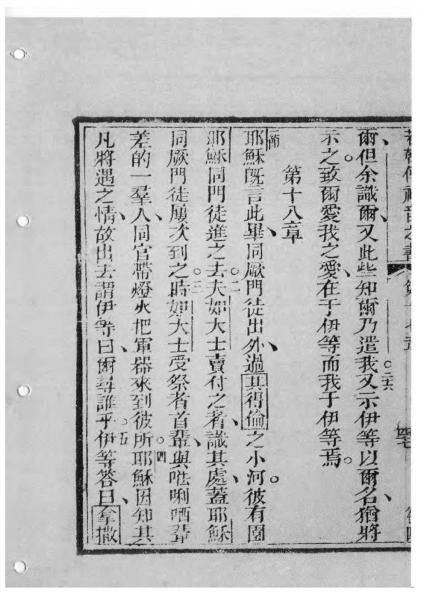 爾但余識爾又此些知爾乃遣我二六又示伊等以爾名猶將
示之致爾愛我之愛在于伊等而我于伊等焉
第十八章
節耶穌既言此畢同厥門徒出外過其得倫之小河彼有園
耶穌同門徒進之去二夫如大士賣付之者識其處蓋耶穌
同厥門徒屢次到之三時如大士受祭者首輩與唎哂輩
差的一羣人同官帶燈火把軍器來到彼所四耶穌因知其
凡將遇之情故出去謂伊等曰爾尋誰乎五伊等答曰拿撒